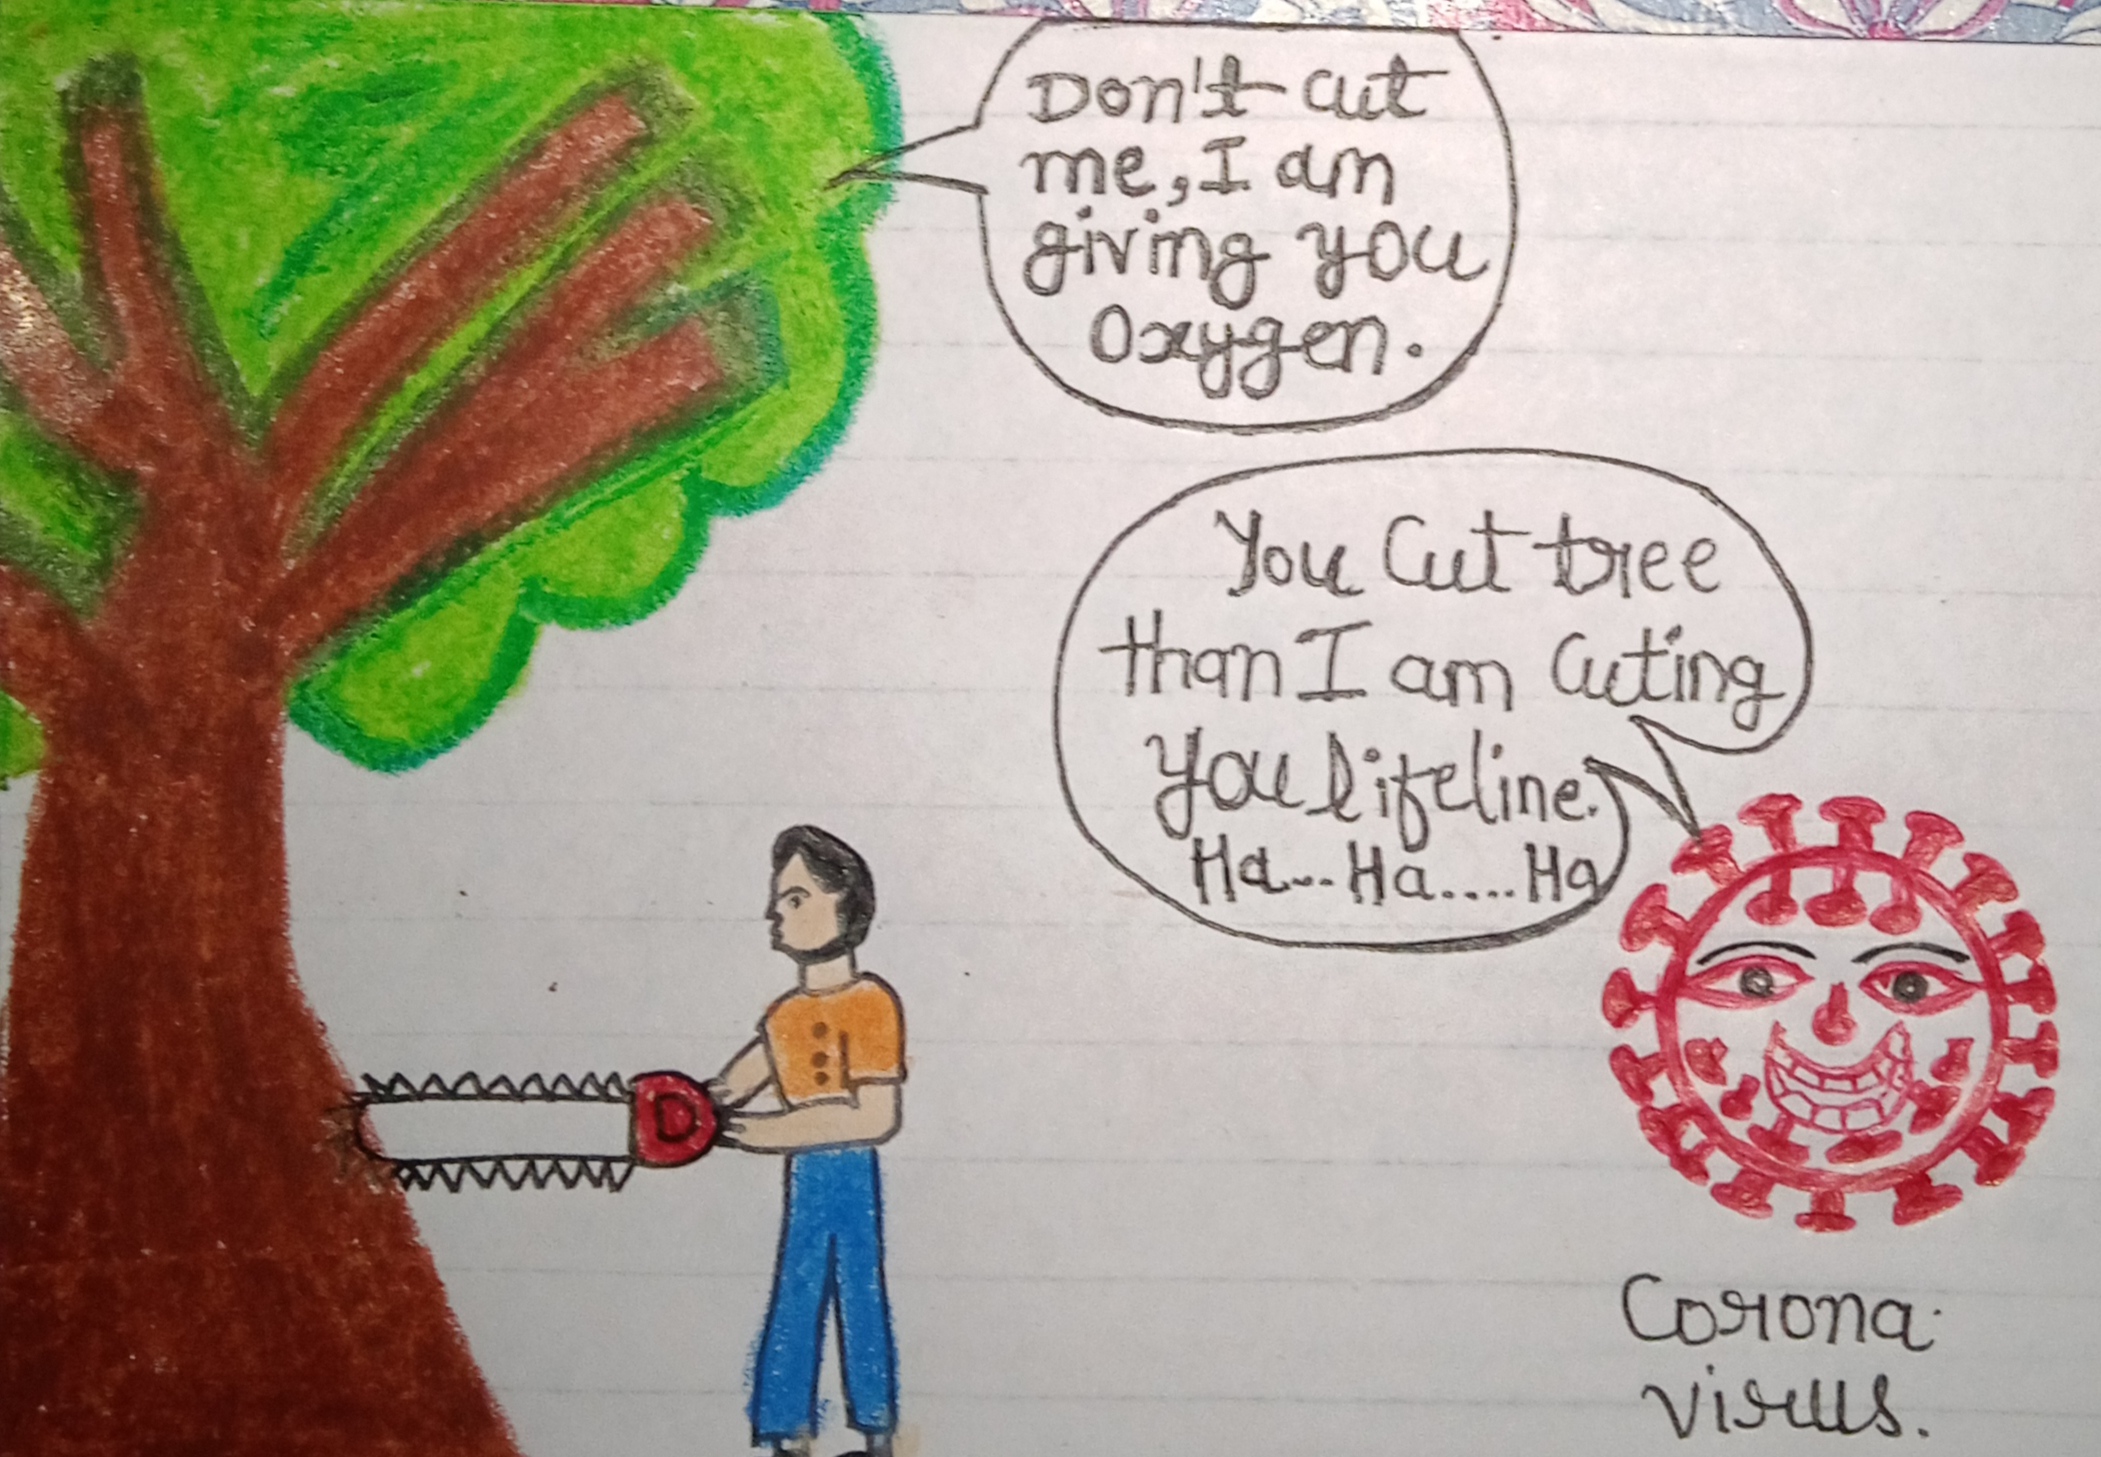 Don't cut
me, I am
giving you
Oxygen.
You Cut tree
than I am Cuting
you lifeline.
Ha... Ha.... Ha
D
Corona
virus.